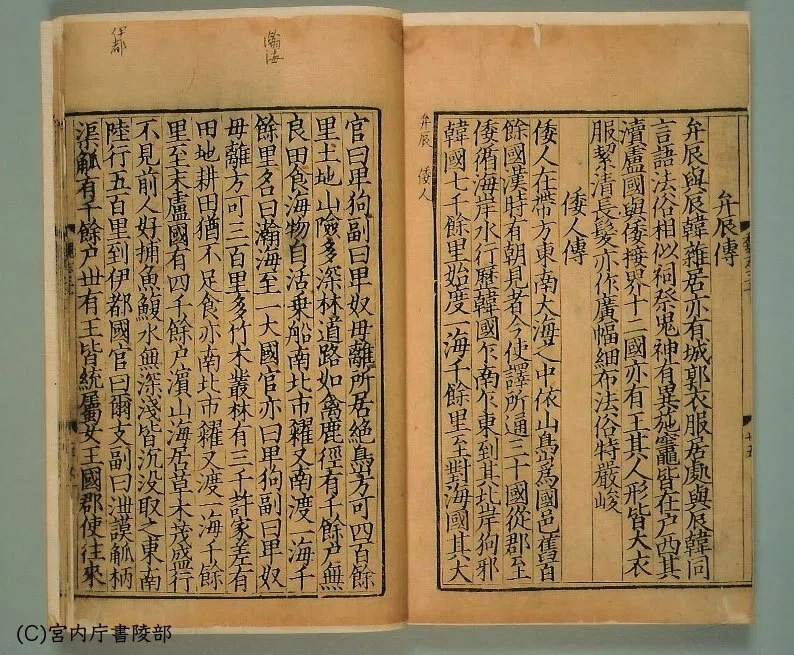 弁辰傳
弁辰與辰韓雜居亦有城郭衣服居處與辰韓同
言語法俗相似祠祭鬼神有異施竈皆在户西其
瀆盧國與倭接界十二國亦有王其人形皆大衣
服絜清長髮亦作廣幅細布法俗特嚴峻
倭人傳
倭人在帶方東南大海之中依山㠀爲國邑舊百
餘國漢時有朝見者今使譯所通三十國從郡至
倭循海岸水行歷韓國乍南乍東到其北岸狗邪
韓國七千餘里始度一海千餘里至對海國其大
弁辰 倭人
瀚海
伊都
官曰卑狗副曰卑奴毋離所居絶㠀方可四百餘
里土地山險多深林道路如禽鹿徑有千餘户無
良田食海物自活乗船南北市糴又南渡一海千
餘里名曰瀚海至一大國官亦曰卑狗副曰卑奴
毋離方可三百里多竹木叢林有三千許家差有
田地耕田猶不足食亦南北市糴又渡一海千餘
里至末盧國有四千餘户濱山海居草木茂盛行
不見前人好捕魚鰒水無深淺皆沉没取之東南
陸行五百里到伊都國官曰爾支副曰泄謨觚柄
渠觚有千餘户丗有王皆統屬女王國郡使往來
(C)宮内庁書陵部